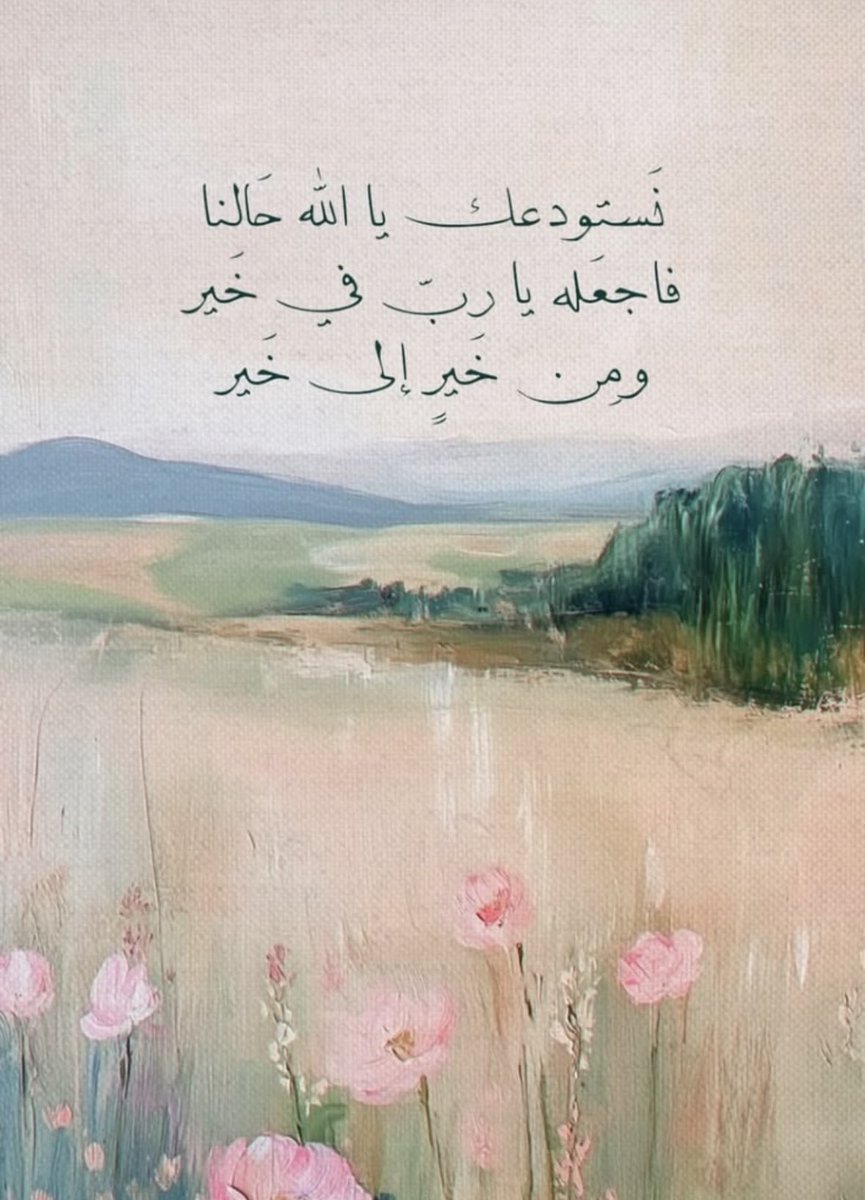 نَستودعك يا الله حَالنا
فاجعَله يا ربّ في خَير
ومِن خَيرٍ إلى خَير